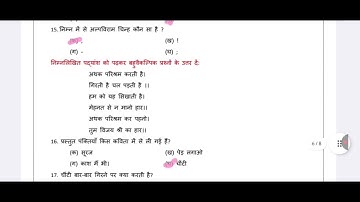 15. निम्न में से अल्पविराम चिन्ह कौन सा है ?
, (ख) !
(ग) - (घ) ;
निम्नलिखित पद्यांश को पढ़कर बहुवैकल्पिक प्रश्नों के उत्तर दें:
अथक परिश्रम करती है।
गिरती है चल पड़ती है ।।
हम को यह सिखाती है।
मेहनत से न मानो हार।।
अथक परिश्रम कर पहनो।
तुम विजय श्री का हार।।
16. प्रस्तुत पंक्तियाँ किस कविता में से ली गई हैं?
(क) सूरज (ख) पेड़ लगाओ
(ग) काश मैं भी। चींटी
17. चींटी बार-बार गिरने पर क्या करती है?
6 / 8